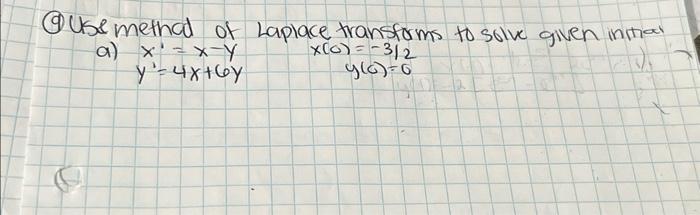 ⑨ Use method of Laplace transforms to solve given initial
a) x' = x-y x(0) = -3/2
y' = 4x+6y y(0)=0